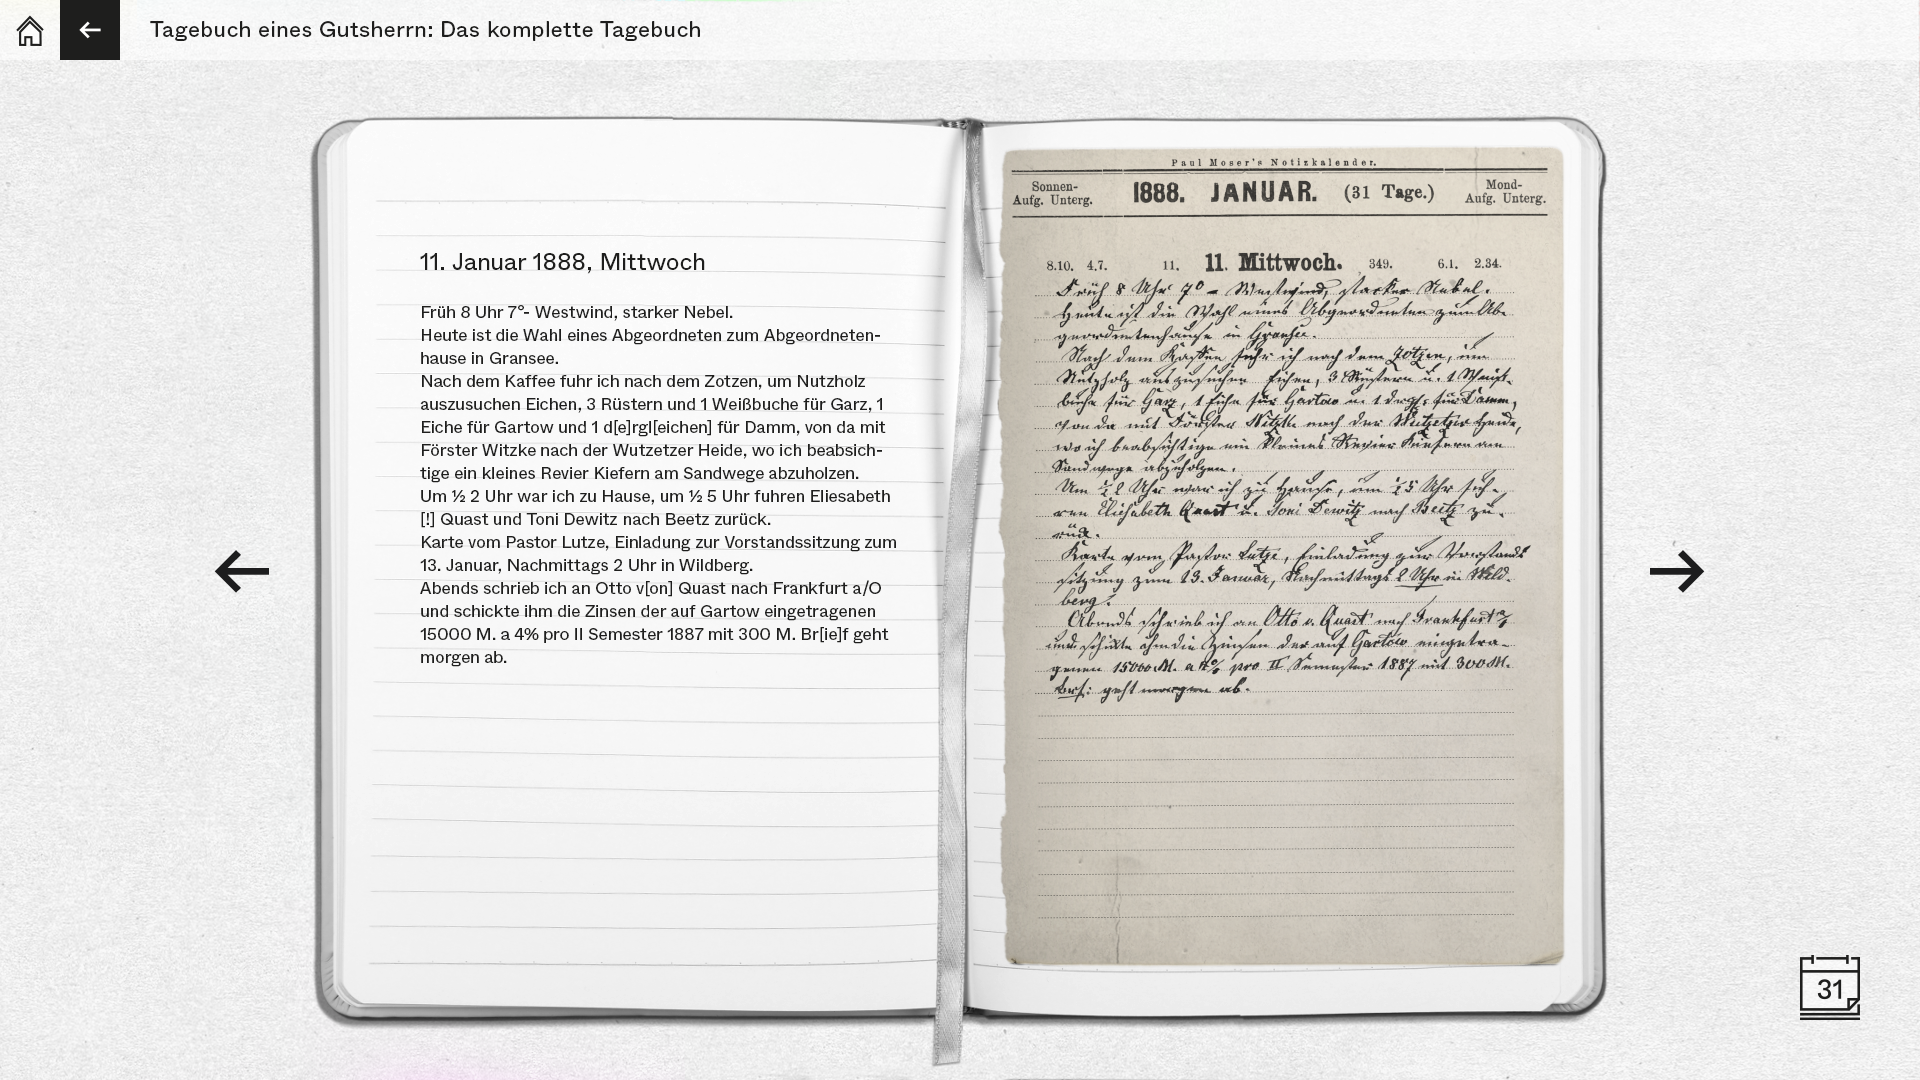 Tagebuch eines Gutsherrn: Das komplette Tagebuch
11. Januar 1888, Mittwoch
Früh 8 Uhr 7°- Westwind, starker Nebel.
Heute ist die Wahl eines Abgeordneten zum Abgeordneten-
hause in Gransee.
Nach dem Kaffee fuhr ich nach dem Zotzen, um Nutzholz
auszusuchen Eichen, 3 Rüstern und 1 Weißbuche für Garz, 1
Eiche für Gartow und 1 d[e]rgl[eichen] für Damm, von da mit
Förster Witzke nach der Wutzetzer Heide, wo ich beabsich-
tige ein kleines Revier Kiefern am Sandwege abzuholzen.
Um ½ 2 Uhr war ich zu Hause, um ½ 5 Uhr fuhren Eliesabeth
[!] Quast und Toni Dewitz nach Beetz zurück.
Karte vom Pastor Lutze, Einladung zur Vorstandssitzung zum
13. Januar, Nachmittags 2 Uhr in Wildberg.
Abends schrieb ich an Otto v[on] Quast nach Frankfurt a/O
und schickte ihm die Zinsen der auf Gartow eingetragenen
15000 M. a 4% pro II Semester 1887 mit 300 M. Br[ie]f geht
morgen ab.
Paul Moser's Notizkalender.
Sonnen-
Aufg. Unterg.
1888. JANUAR. (31 Tage.)
Mond-
Aufg. Unterg.
8.10. 4.7. 11. 11. Mittwoch. 349. 6.1. 2.34.
Früh 8 Uhr 7° - Westwind, starker Nebel.
Heute ist die Wahl eines Abgeordneten zum Abe-
geordnetenhause in Gransee.
Nach dem Kaffee fuhr ich nach dem Zotzen, um
Nutzholz auszusuchen Eichen, 3 Rüstern u. 1 Weiß-
buche für Garz, 1 Eiche für Gartow u. 1 drgl: für Damm,
von da mit Förster Witzke nach der Wutzetzer Heide,
wo ich beabsichtige ein kleines Revier Kiefern am
Sandwege abzuholzen.
Um ½ 2 Uhr war ich zu Hause, um ½ 5 Uhr fuh-
ren Eliesabeth Quast u. Toni Dewitz nach Beetz zu-
rück.
Karte vom Pastor Lutze, Einladung zur Vorstands
sitzung zum 13. Januar, Nachmittags 2 Uhr in Wild-
berg.
Abends schrieb ich an Otto v. Quast nach Frankfurt a/O
und schickte ihm die Zinsen der auf Gartow eingetra-
genen 15000 M. a 4% pro II Semester 1887 mit 300 M.
Brf: geht morgen ab.
31